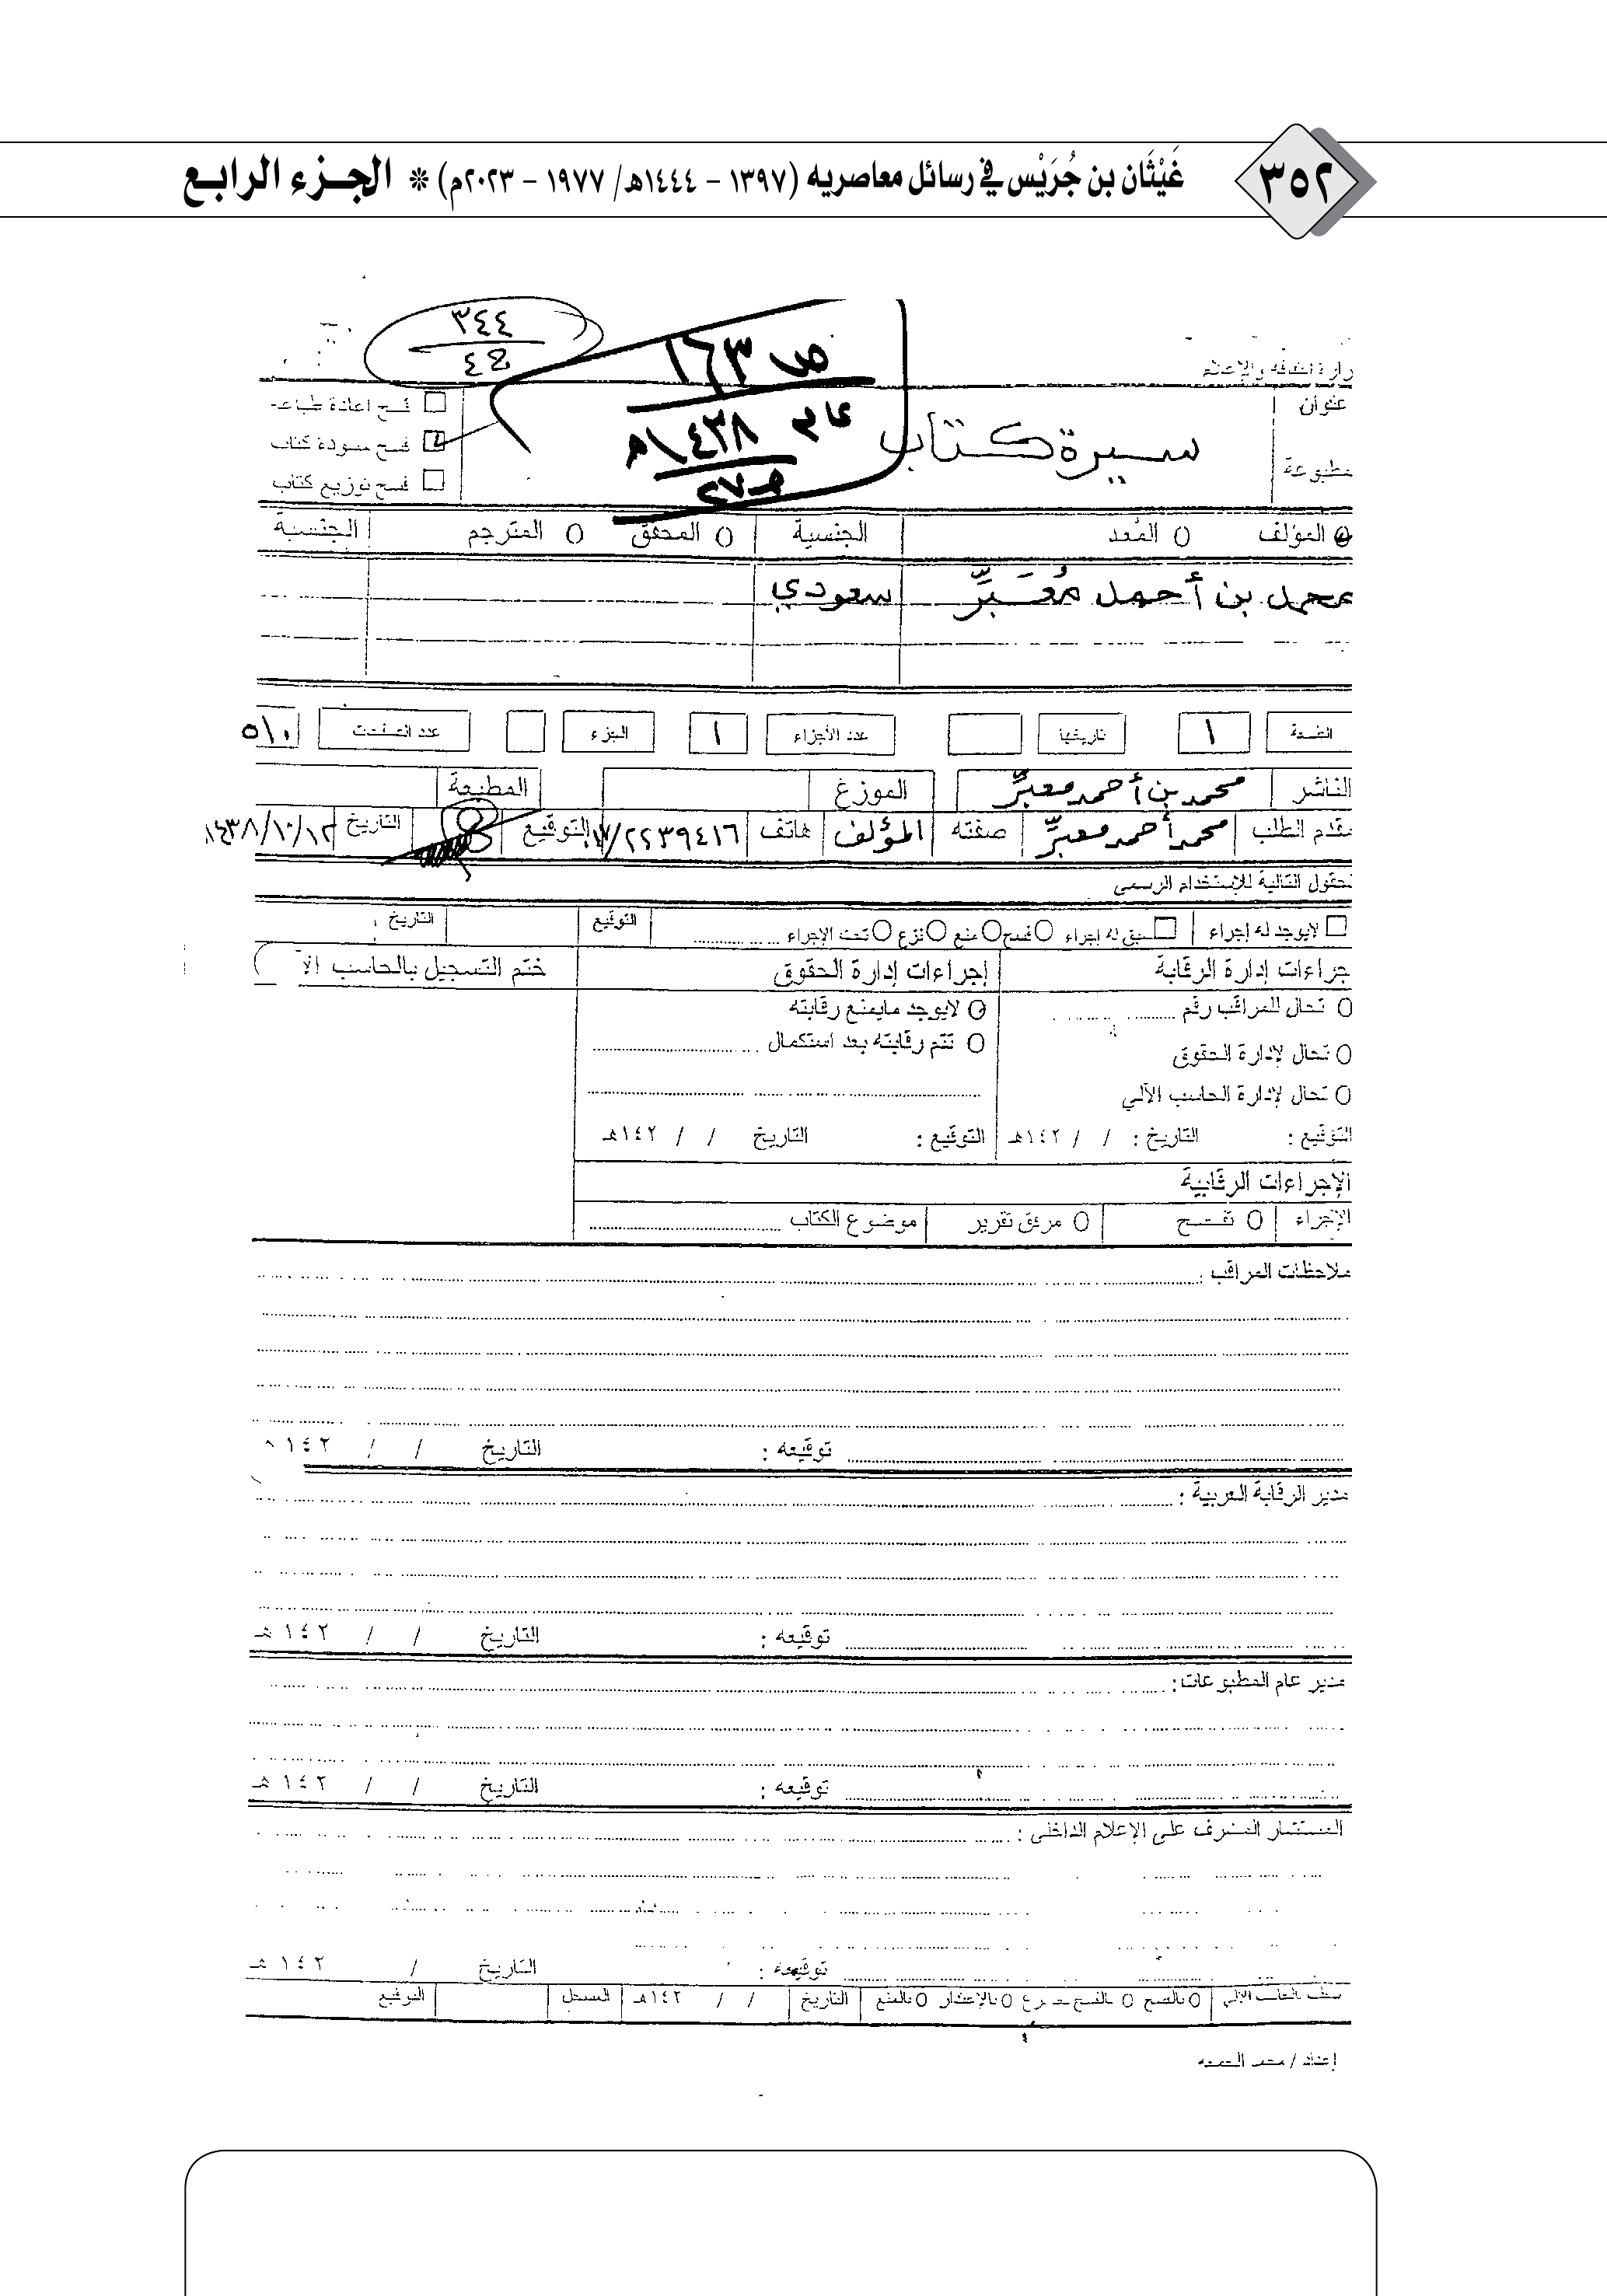 ٣٥٢
غَيْثَان بن جُرَيْس في رسائل معاصريه (١٣٩٧ - ١٤٤٤هـ/ ١٩٧٧ - ٢٠٢٣م) * الجـزء الرابـع
٣٤٤
ص ١٦٣
عام ١٤٣٨هـ
وزارة الثقافة والإعلام
عنوان
مطبوعة
سيرة كتاب
فسح اعادة طباعة
فسح مسودة كتاب
فسح توزيع كتاب
المؤلف المُعد الجنسية المحقق المترجم الجنسية
محمد بن أحمد مُعَبِّر سعودي
الطبعة ١ تاريخها عدد الأجزاء ١ الجزء عدد الصفحات ٥١٠
الناشر محمد بن أحمد معبّر الموزع المطبعة
مقدم الطلب محمد أحمد معبّر صفته المؤلف هاتف ٠١٧/٢٢٣٩٤١٦ التوقيع التاريخ ١٤٣٨/١٠/١٢
الحقول التالية للإستخدام الرسمي
لايوجد له إجراء سبق له إجراء فسح منع نزع تحت الإجراء التوقيع التاريخ
إجراءات إدارة الرقابة إجراءات إدارة الحقوق ختم التسجيل بالحاسب الآ
تحال للمراقب رقم لايوجد مايمنع رقابته
تحال لإدارة الحقوق تتم رقابته بعد استكمال
تحال لإدارة الحاسب الآلي
التوقيع : التاريخ : / / ١٤٢هـ التوقيع : التاريخ / / ١٤٢هـ
الإجراءات الرقابية
الإجراء تفسح مرفق تقرير موضوع الكتاب
ملاحظات المراقب :
توقيعه : التاريخ / / ١٤٢
مدير الرقابة العربية :
توقيعه : التاريخ / / ١٤٢هـ
مدير عام المطبوعات :
توقيعه : التاريخ / / ١٤٢هـ
المستشار المشرف على الإعلام الداخلي :
توقيعه : التاريخ / ١٤٢هـ
بالفسح بالإعتذار بالمنع التاريخ / / ١٤٢هـ المسجل التوقيع
إعداد / محمد